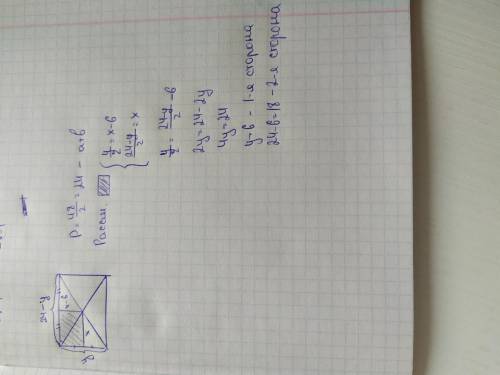 24-y
x-6
x
y
P = 48/2 = 24 - a+b
Рассм.
{ y/2 = x-6
24-y/2 = x
y/2 = 24-y/2 - 6
2y = 24-2y
4y = 24
y = 6 - 1-я сторона
24-6=18 - 2-я сторона